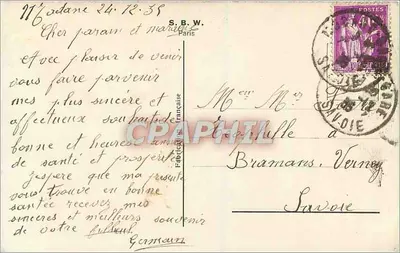 Modane 24.12.35
Cher parain et maraine
Avec plaisir de venir
vous faire parvenir
mes plus sincère et
affectieux souhaits de
bonne et heureuse année
de santé et prospérité
J'espère que ma présente
vous trouve en bonne
santée recevez mes
sincères et meilleurs souvenir
de votre filleul
Germain
S. B. W.
Paris
Fabrication française
POSTES
SAVOIE
Mem Mer
à
Bramans. Verney
Savoie
CPAPHIL